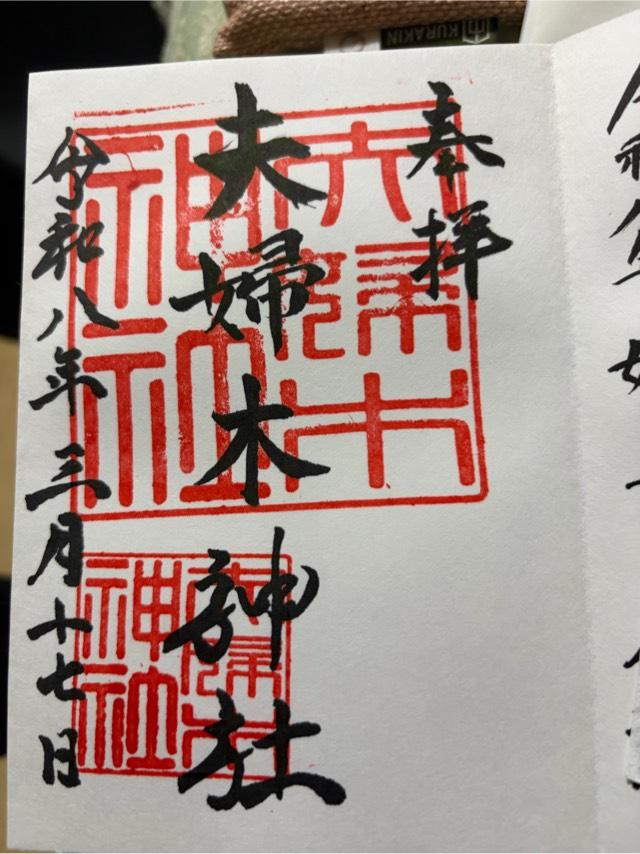 奉拝
夫婦木神社
令和八年三月十七日
夫婦木
神社
夫婦木
神社
KURAKIN